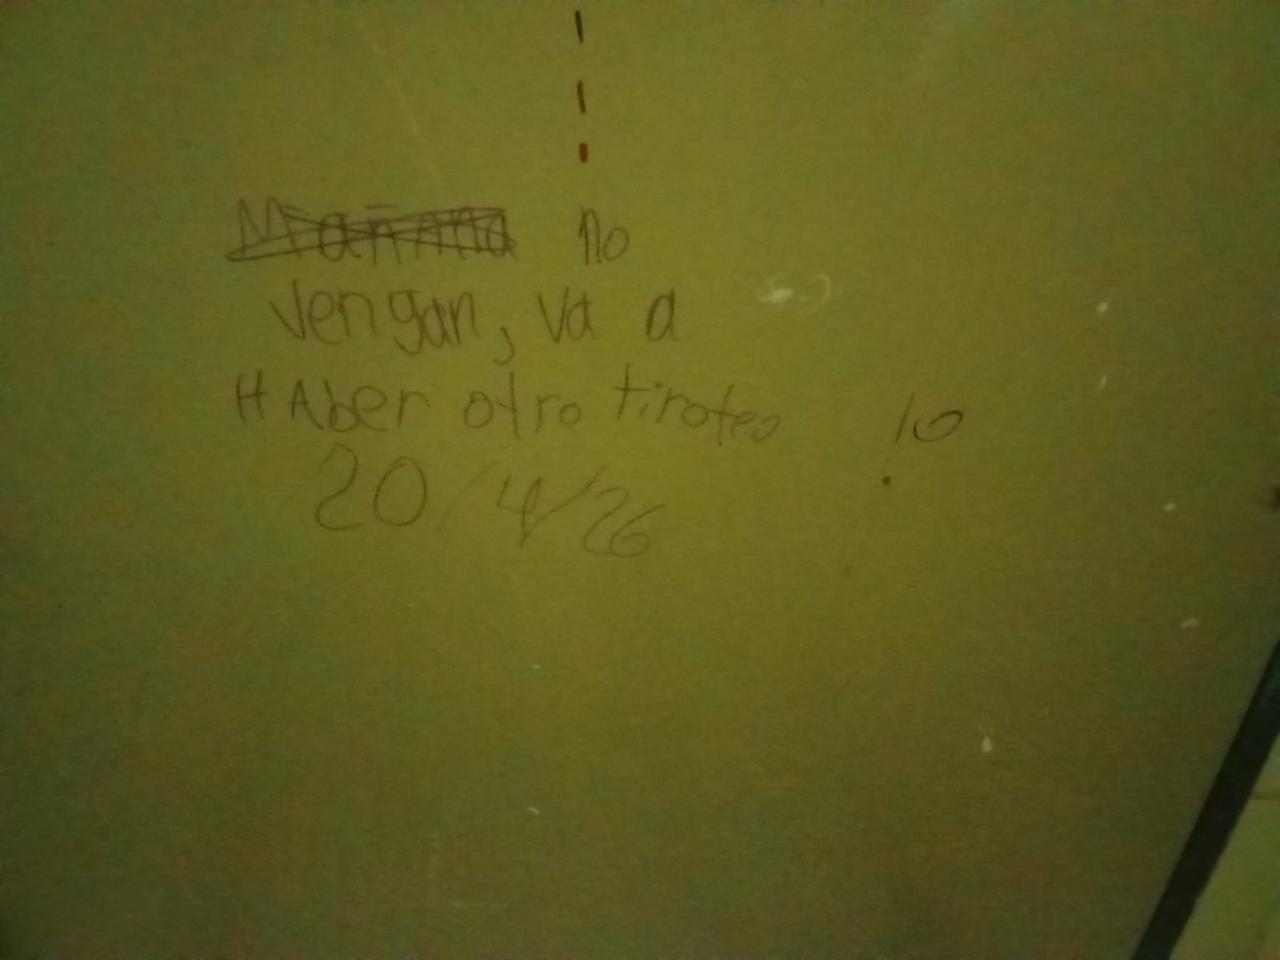 Mañana no
vengan, va a
HAber otro tiroteo
20/4/26
10